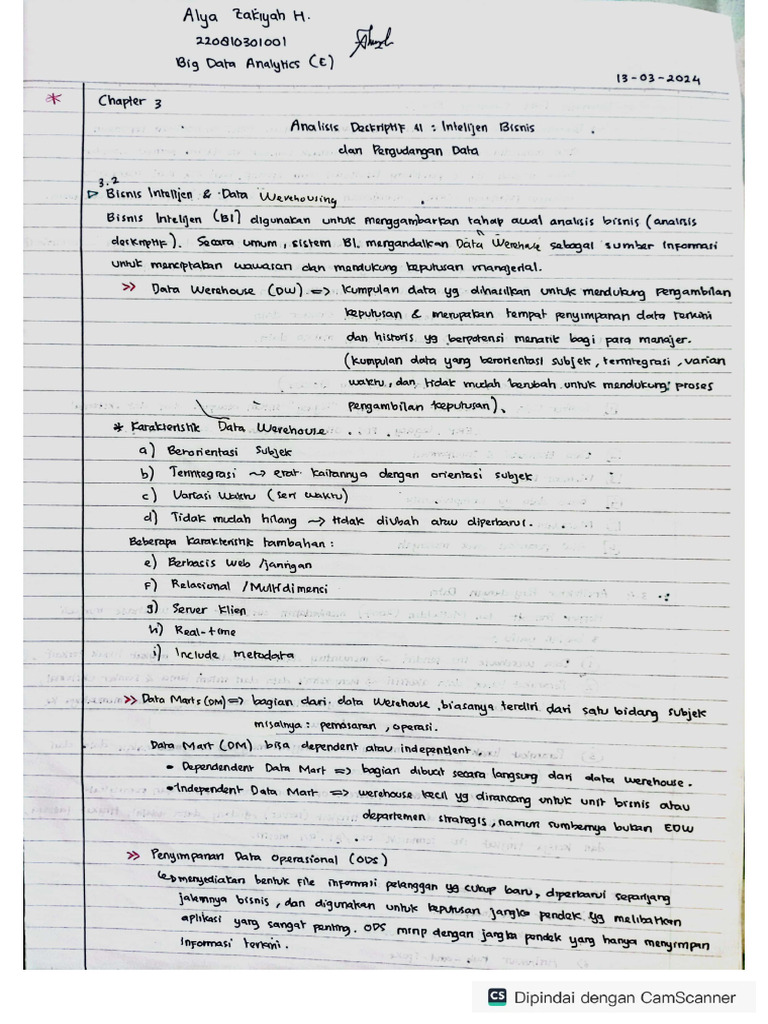 Alya Zakiyah H.
220810301001
Big Data Analytics (E)
13-03-2024
* Chapter 3
Analisis Deskriptif II : Intelijen Bisnis
dan Pergudangan Data
3.2
▷ Bisnis Intelijen & Data Werehousing
Bisnis Intelijen (BI) digunakan untuk menggambarkan tahap awal analisis bisnis (analisis
deskriptif). Secara umum, sistem BI mengandalkan Data Werehouse sebagai sumber informasi
untuk menciptakan wawasan dan mendukung keputusan manajerial.
>> Data Werehouse (DW) => Kumpulan data yg dihasilkan untuk mendukung pengambilan
keputusan & merupakan tempat penyimpanan data terkini
dan historis yg berpotensi menarik bagi para manajer.
(kumpulan data yang berorientasi subjek, terintegrasi, varian
waktu, dan tidak mudah berubah untuk mendukung proses
pengambilan keputusan).
* Karakteristik Data Werehouse
a) Berorientasi Subjek
b) Terintegrasi → erat kaitannya dengan orientasi subjek
c) Variasi Waktu (seri waktu)
d) Tidak mudah hilang → tidak diubah atau diperbarui.
Beberapa karakteristik tambahan :
e) Berbasis web /jaringan
f) Relasional /Multidimensi
g) Server klien
h) Real-time
i) Include metadata
>> Data Marts (DM) => bagian dari data werehouse, biasanya terdiri dari satu bidang subjek
misalnya : pemasaran, operasi.
Data Mart (DM) bisa dependent atau independent.
• Dependendent Data Mart => bagian dibuat secara langsung dari data werehouse.
• Independent Data Mart => werehouse kecil yg dirancang untuk unit bisnis atau
departemen strategis, namun sumbernya bukan EDW
>> Penyimpanan Data Operasional (ODS)
↳ menyediakan bentuk file informasi pelanggan yg cukup baru, diperbarui sepanjang
jalannya bisnis, dan digunakan untuk keputusan jangka pendek yg melibatkan
aplikasi yang sangat penting. ODS mirip dengan jangka pendek yang hanya menyimpan
informasi terkini.
CS Dipindai dengan CamScanner